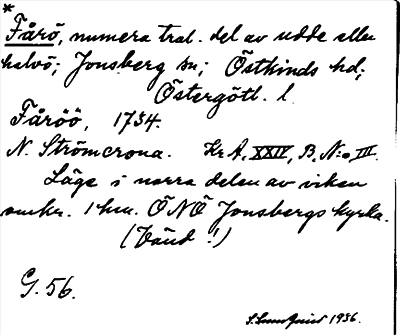 *
Fårö, numera trol. del av udde eller
halvö; Jonsberg sn; Östkinds hd;
Östergötl. l.
Fåröö, 1734.
N. Strömcrona. Kr. A. XXIV, B. N:o III.
Läge i norra delen av viken
omkr. 1 km. ÖNÖ Jonsbergs kyrka.
(Vänd!)
G. 56.
S. Lundquist 1936.